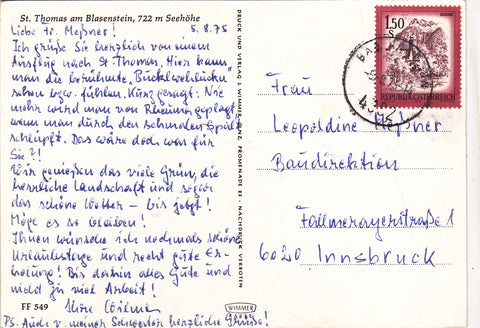 St. Thomas am Blasenstein, 722 m Seehöhe
Liebe Fr. Meßner! 5.8.75
Ich grüße Sie herzlich von einem
Ausflug nach St. Thomas. Hier kann
man die berühmte, "Bucklwehluck'n"
sehen bzw. fühlen. Kurz gesagt: Nie
mehr wird man von Rheuma geplagt,
wenn man durch den schmalen Spalt
schlüpft. Das wäre doch was für
Sie?!
Wir genießen das viele Grün, die
herrliche Landschaft und sogar
das schöne Wetter – bis jetzt!
Möge es so bleiben!
Ihnen wünsche ich nochmals schöne
Urlaubstage und recht gute Er-
holung! Bis dahin alles Gute und
nicht zu viel Arbeit!
Ihre
PS. Auch v. meiner Schwester herzliche Grüße!
FF 549
WIMMER
DRUCK UND VERLAG: WIMMER, LINZ, PROMENADE 21 - NACHDRUCK VERBOTEN
1.50
S
REPUBLIK ÖSTERREICH
Frau
Leopoldine Meßner
Baudirektion
Fallmerayerstraße 1
6020 Innsbruck